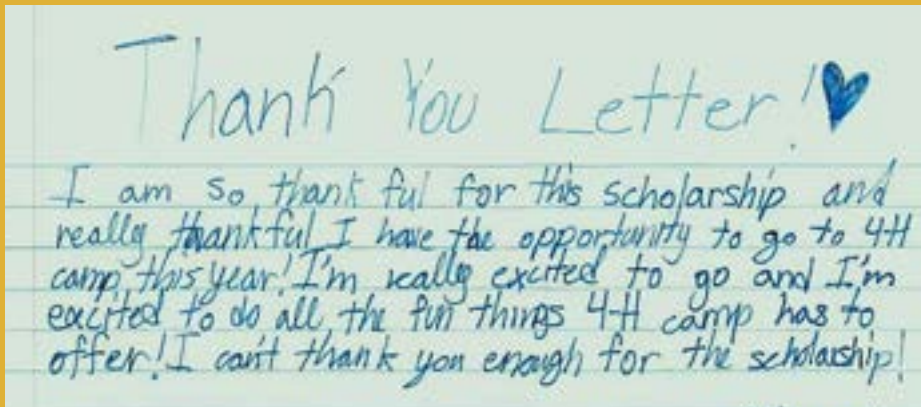 Thank You Letter!
I am so thankful for this scholarship and
really thankful I have the opportunity to go to 4H
camp this year! I'm really excited to go and I'm
excited to do all the fun things 4-H camp has to
offer! I can't thank you enough for the scholarship!